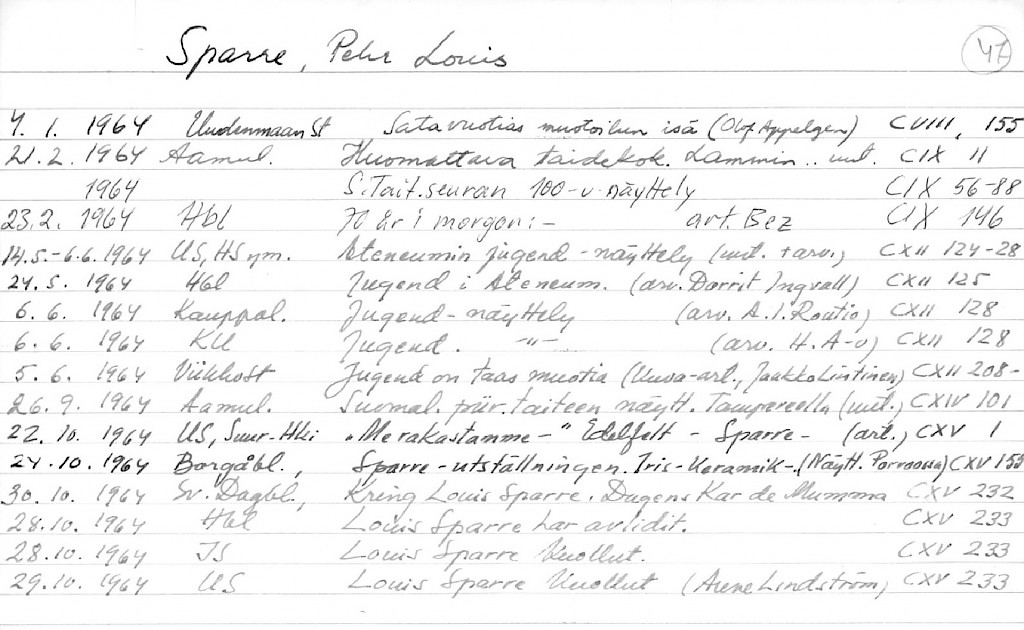 Sparre, Pehr Louis 47
4. 1. 1964 Uudenmaan St Satavuotias muotoilun isä (Olof Appelgen) CVIII, 155
21.2. 1964 Aamul. Huomattava taidekok. Lammin.. uut. CIX 11
1964 S. Tait. seuran 100-v. näyttely CIX 56-88
23.2. 1964 Hbl 70 år i morgon:- art. Bez CIX 146
14.5.-6.6. 1964 US, HS ym. Ateneumin jugend-näyttely (uut. + arv.) CXII 124-28
24.5. 1964 Hbl Jugend i Ateneum. (arv. Dorrit Ingvall) CXII 125
6.6. 1964 Kauppal. Jugend-näyttely (arv. A.I. Routio) CXII 128
6.6. 1964 KU Jugend. -"- (arv. H. A-o) CXII 128
5.6. 1964 Viikkost Jugend on taas muotia (Kuva-art., Jaakko Lintinen) CXII 208-
26.9. 1964 Aamul. Suomal. piir. taiteen näytt. Tampereella (uut.) CXIV 101
22.10. 1964 US, Suur-Hki "Me rakastamme-" Edelfelt - Sparre - (art.) CXV 1
24.10. 1964 Borgåbl., Sparre-utställningen. Iris-Keramik-. (Näytt. Porvoossa) CXV 155
30.10. 1964 Sv. Dagbl., Kring Louis Sparre. Dagens Kar de Mumma CXV 232
28.10. 1964 Hbl Louis Sparre har avlidit. CXV 233
28.10. 1964 IS Louis Sparre kuollut. CXV 233
29.10. 1964 US Louis Sparre kuollut (Aune Lindström) CXV 233